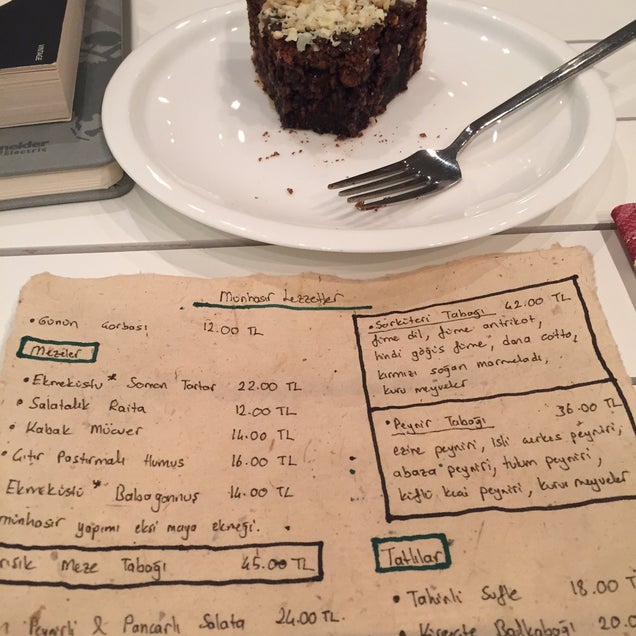 VINTAGE
neider
Electric
Münhasır Lezzetler
• Günün Çorbası 12.00 TL
Mezeler
• Ekmeküstü * Somon Tartar 22.00 TL
• Salatalık Raita 12.00 TL
• Kabak Mücver 14.00 TL
• Çıtır Pastırmalı Humus 16.00 TL
Ekmeküstü * Babagannuş 14.00 TL
münhasır yapımı ekşi maya ekmeği.
rışık Meze Tabağı 45.00 TL
Peynirli & Pancarlı Salata 24.00 TL.
• Şarküteri Tabağı 42.00 TL
füme dil, füme antrikot,
hindi göğüs füme, dana cotto,
kırmızı soğan marmeladı,
kuru meyveler
• Peynir Tabağı 36.00 TL
ezine peyniri, isli çerkes peyniri,
abaza peyniri, tulum peyniri,
küflü keçi peyniri, kuru meyveler
Tatlılar
• Tahinli Sufle 18.00 TL
• Kireçte Balkabağı 20.0